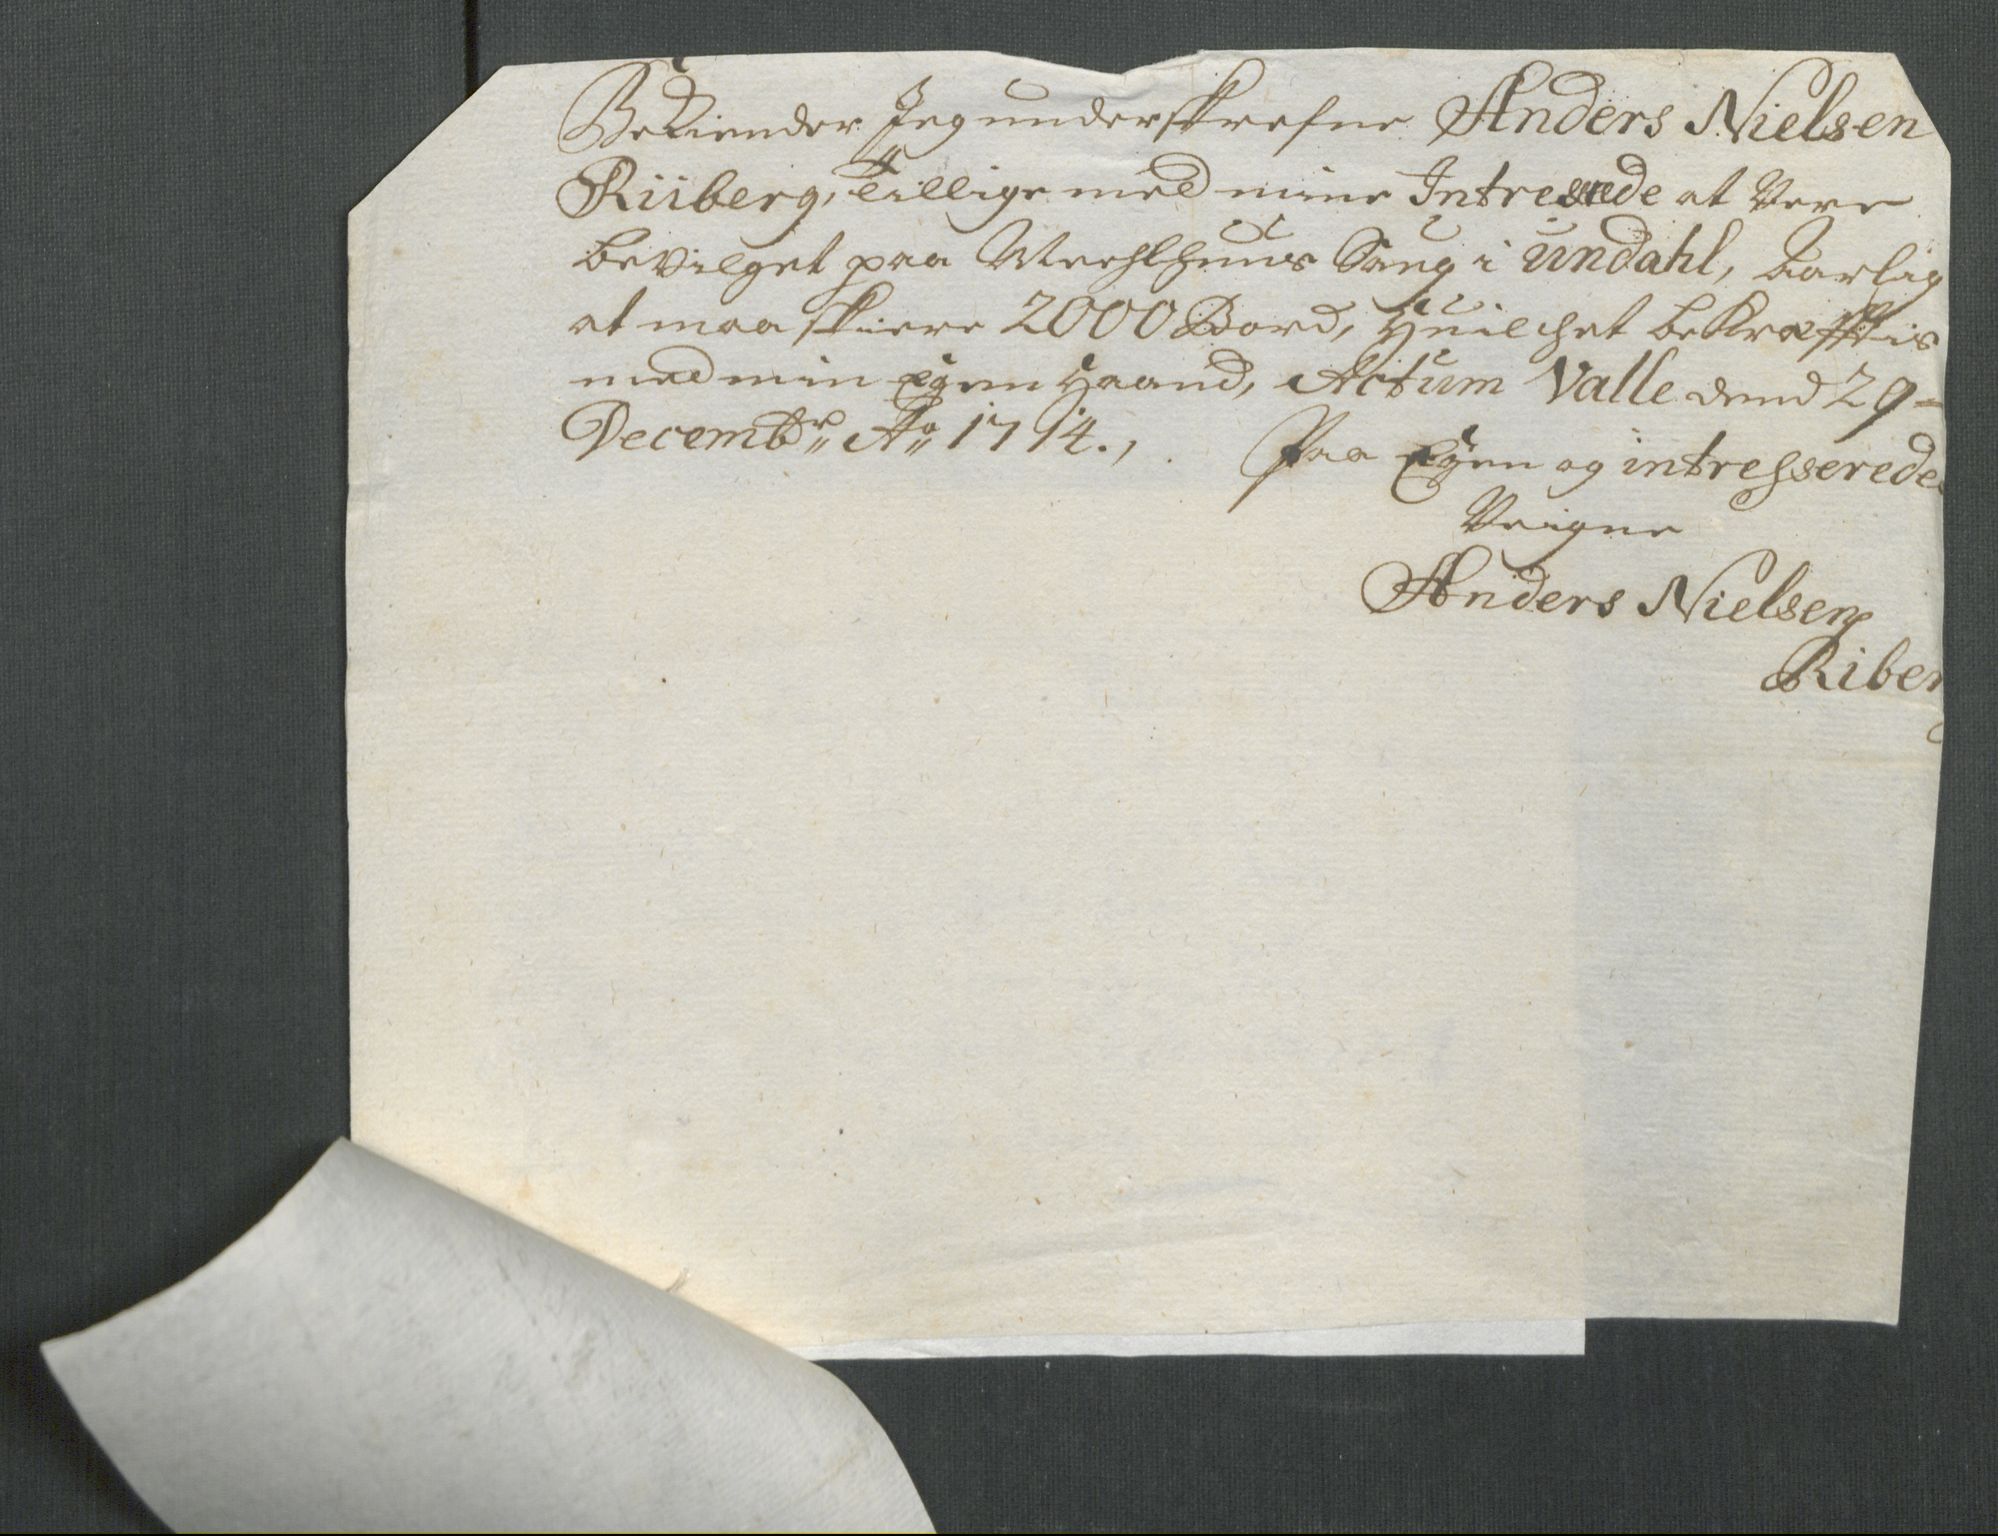 Bekiender Jeg underskrefne Anders Nielsen
Riiberg, Tillige med mine Intressede at Vere
beVilget paa Meehlhuus Saug i Undahl, Aarlig
at maa skiere 2000 Bord, Huilchet bekræfftis
med min Egen Haand, Actum Valle dend 29-
Decembr: Ao 1714.,
Paa Egen og intresserede
Veigne
Anders Nielsen
Riberg